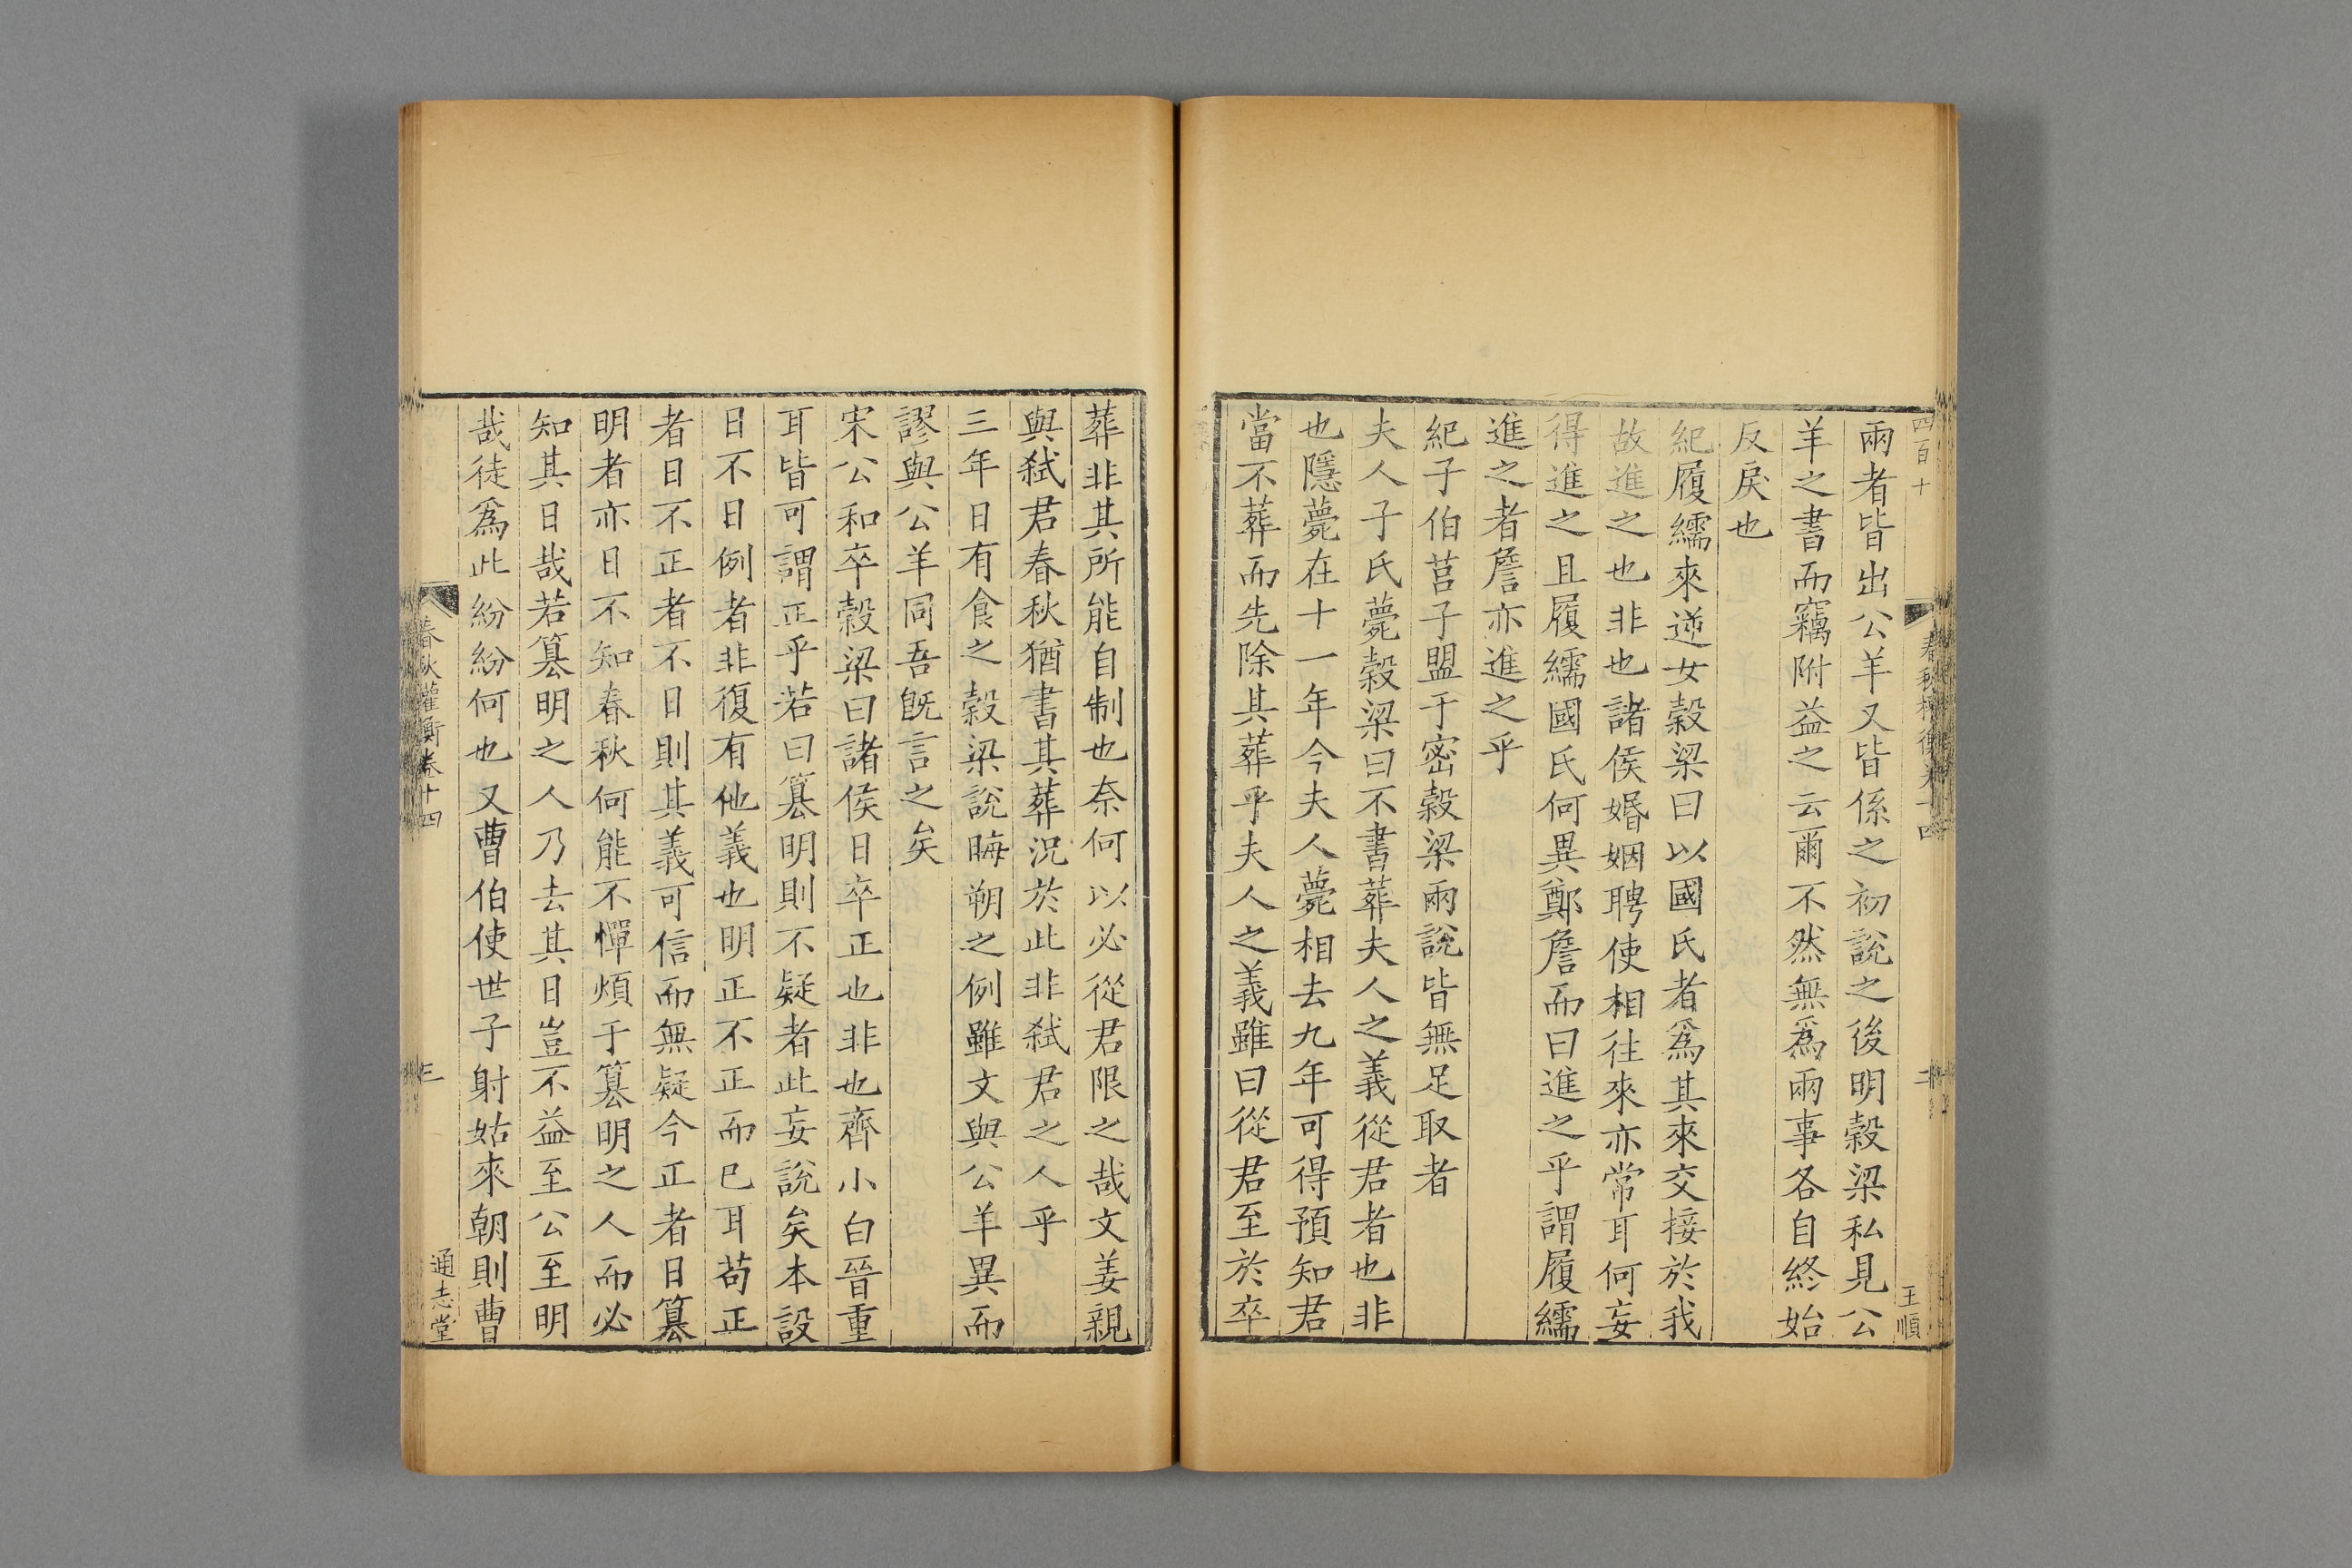 四百十
春秋權衡卷十四
二
王順
兩者皆出公羊又皆係之初說之後明穀梁私見公
羊之書而竊附益之云爾不然無爲兩事各自終始
反戾也
紀履繻來逆女穀梁曰以國氏者爲其來交接於我
故進之也非也諸侯婚姻聘使相往來亦常耳何妄
得進之且履繻國氏何異鄭詹而曰進之乎謂履繻
進之者詹亦進之乎
紀子伯莒子盟于密穀梁兩說皆無足取者
夫人子氏薨穀梁曰不書葬夫人之義從君者也非
也隱薨在十一年今夫人薨相去九年可得預知君
當不葬而先除其葬乎夫人之義雖曰從君至於卒
葬非其所能自制也奈何以必從君限之哉文姜親
與弑君春秋猶書其葬況於此非弑君之人乎
三年日有食之穀梁說晦朔之例雖文與公羊異而
謬與公羊同吾旣言之矣
宋公和卒穀梁曰諸侯日卒正也非也齊小白晉重
耳皆可謂正乎若曰篡明則不疑者此妄說矣本設
日不日例者非復有他義也明正不正而已耳苟正
者日不正者不日則其義可信而無疑今正者日篡
明者亦日不知春秋何能不憚煩于篡明之人而必
知其日哉若篡明之人乃去其日豈不益至公至明
哉徒爲此紛紛何也又曹伯使世子射姑來朝則曹
春秋權衡卷十四
三
通志堂